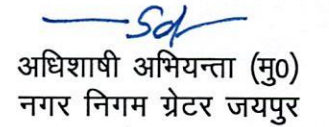 Sd/-
अधिशाषी अभियन्ता (मु०)
नगर निगम ग्रेटर जयपुर